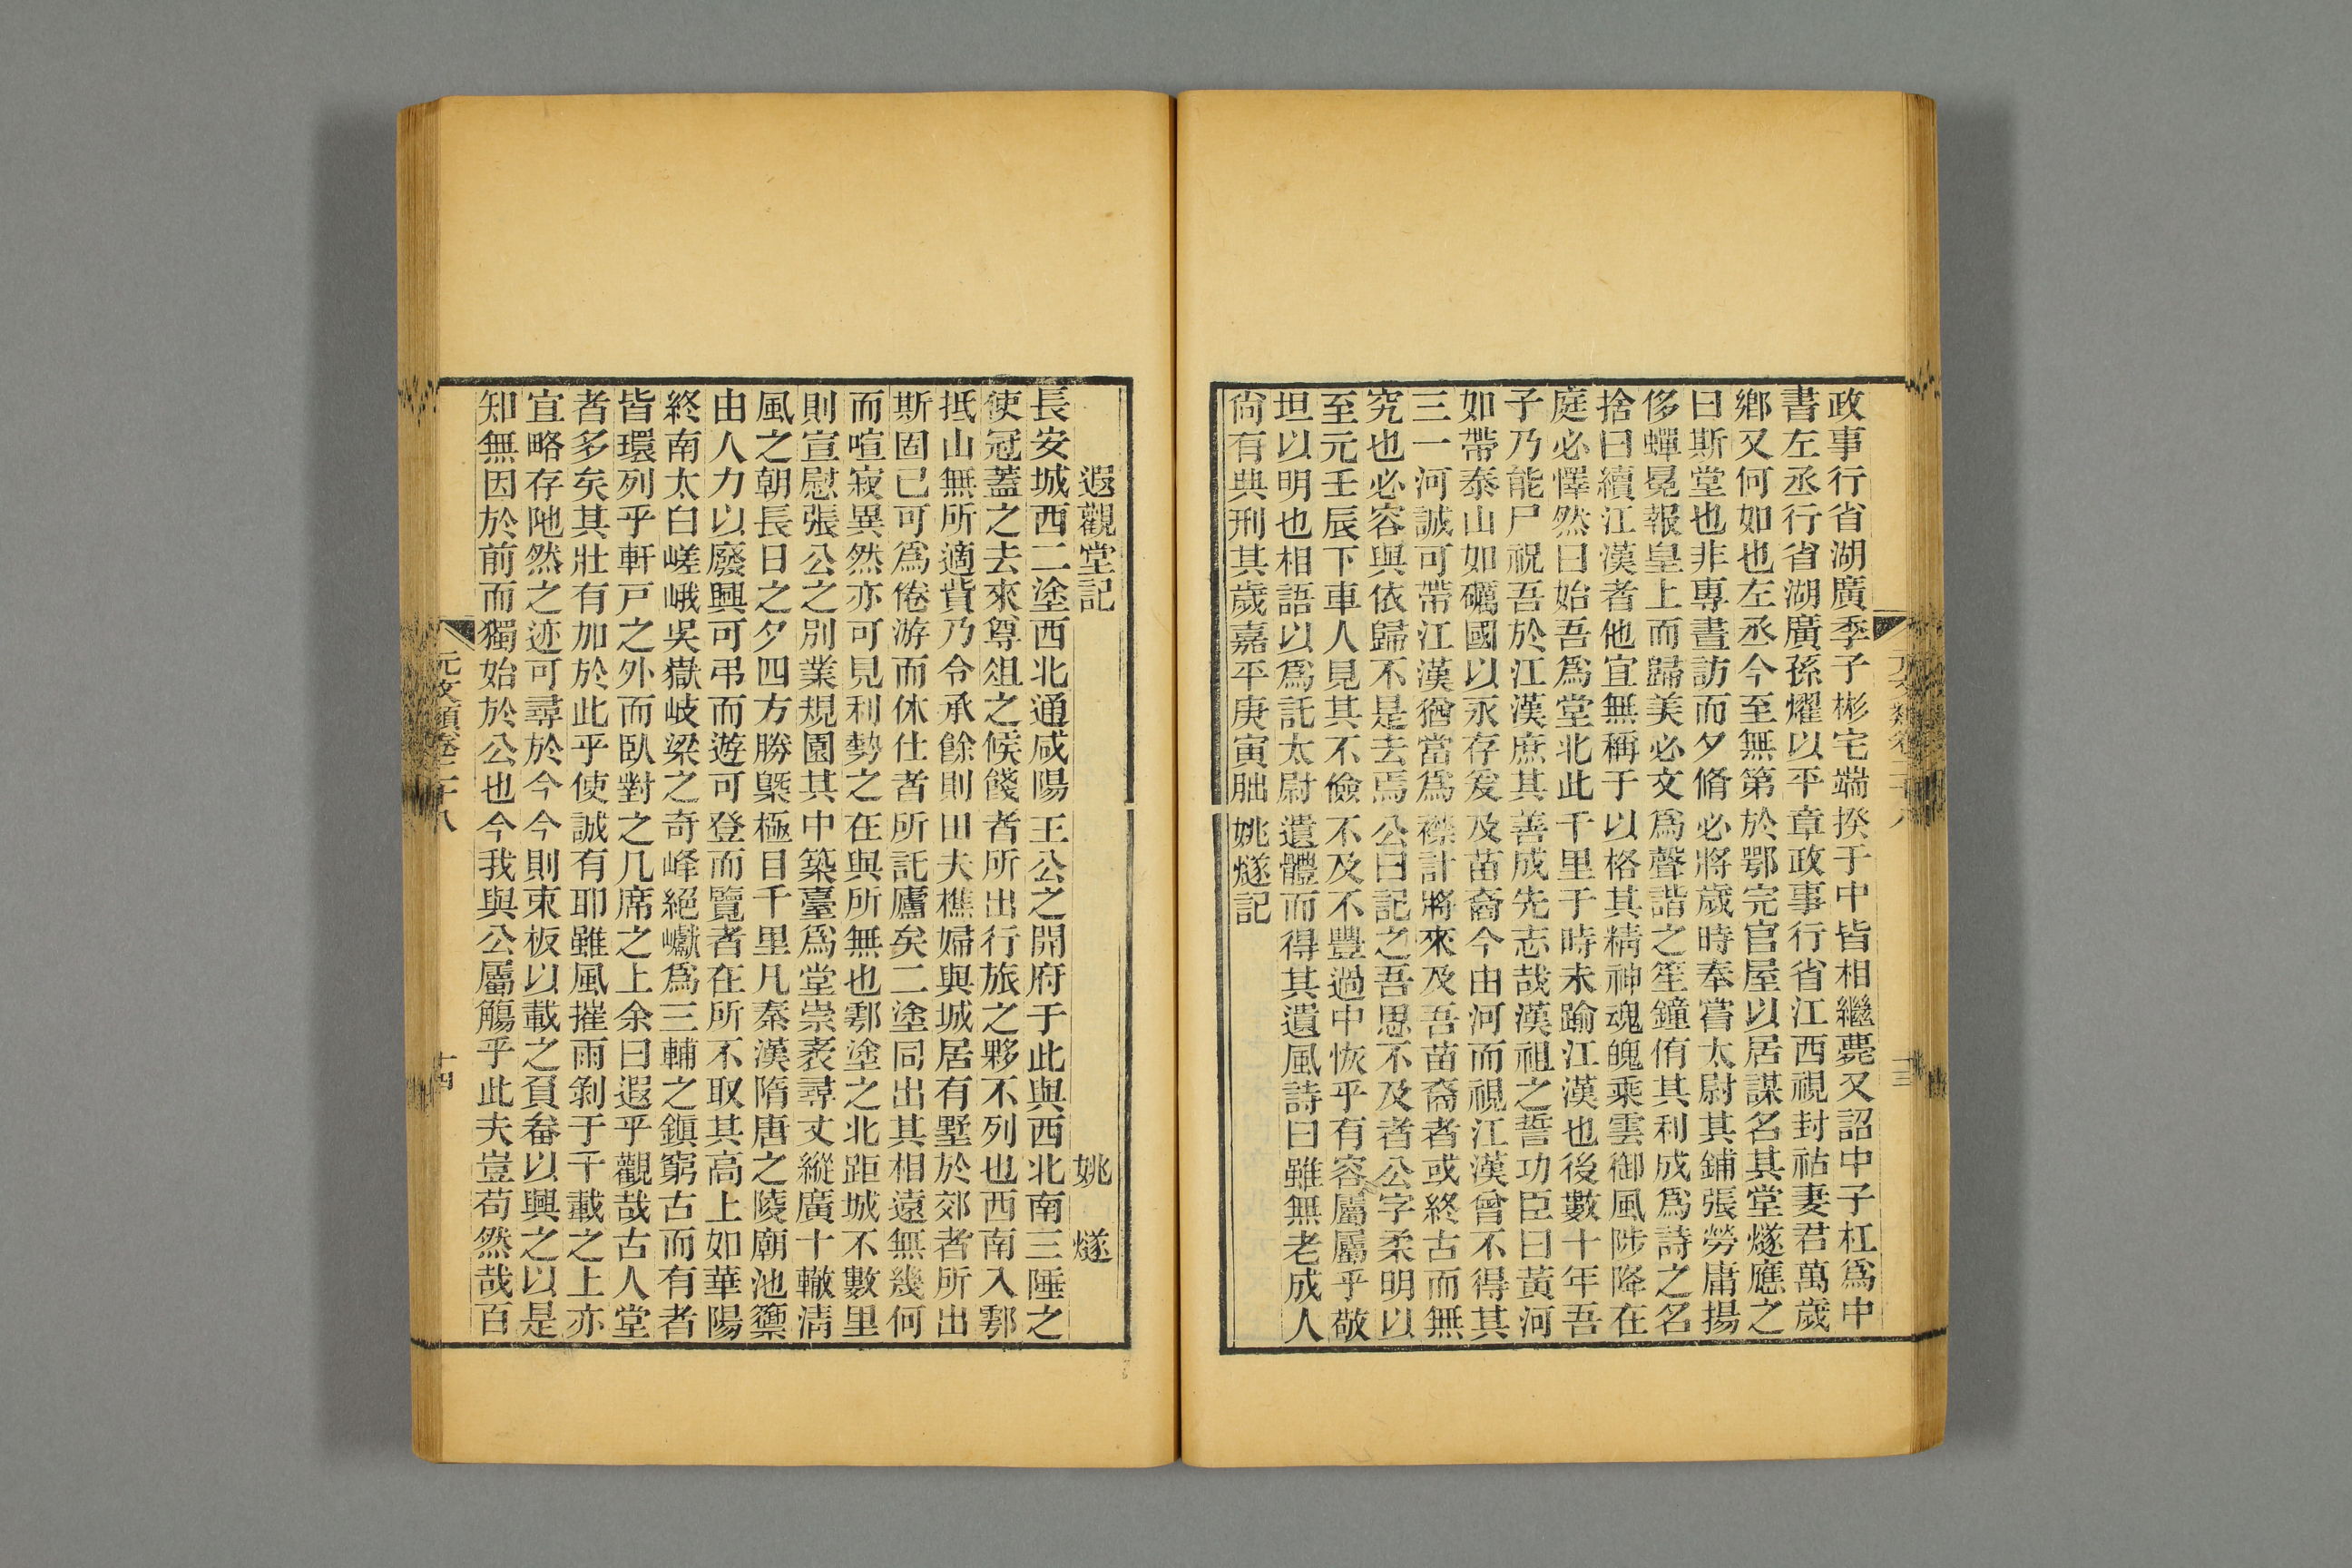 政事行省湖廣季子彬宅端揆于中皆相繼薨又詔中子杠爲中
書左丞行省湖廣孫燿以平章政事行省江西視封祜妻君萬歲
鄉又何如也左丞今至無第於鄂完官屋以居謀名其堂燧應之
曰斯堂也非專晝訪而夕脩必將歲時奉嘗太尉其鋪張勞庸揚
侈蟬冕報皇上而歸美必文爲聲諧之笙鐘侑其利成爲詩之名
捨曰續江漢者他宜無稱于以格其精神魂魄乘雲御風陟降在
庭必懌然曰始吾爲堂北此千里于時未踰江漢也後數十年吾
子乃能尸祝吾於江漢庶其善成先志哉漢祖之誓功臣曰黃河
如帶泰山如礪國以永存爰及苗裔今由河而視江漢曾不得其
三一河誠可帶江漢猶當爲襟計將來及吾苗裔者或終古而無
究也必容與依歸不是去焉公曰記之吾思不及者公字柔明以
至元壬辰下車人見其不儉不及不豐過中恢乎有容屬屬乎敬
坦以明也相語以爲託太尉遺體而得其遺風詩曰雖無老成人
尙有典刑其歲嘉平庚寅朏姚燧記
元文類卷二十八
十三
遐觀堂記 姚燧
長安城西二塗西北通咸陽王公之開府于此與西北南三陲之
使冠蓋之去來尊俎之候餞者所出行旅之夥不列也西南入鄠
抵山無所適貲乃令承餘則田夫樵婦與城居有墅於郊者所出
斯固已可爲倦游而休仕者所託廬矣二塗同出其相遠無幾何
而喧寂異然亦可見利勢之在與所無也鄠塗之北距城不數里
則宣慰張公之別業規園其中築臺爲堂崇袤尋丈縱廣十轍淸
風之朝長日之夕四方勝槩極目千里凡秦漢隋唐之陵廟池籞
由人力以廢興可弔而遊可登而覽者在所不取其高上如華陽
終南太白嵯峨吳嶽岐梁之奇峰絕巘爲三輔之鎭窮古而有者
皆環列乎軒戸之外而臥對之几席之上余曰遐乎觀哉古人堂
者多矣其壯有加於此乎使誠有耶雖風摧雨剝于千載之上亦
宜略存阤然之迹可尋於今今則束板以載之頁畚以興之以是
知無因於前而獨始於公也今我與公屬觴乎此夫豈苟然哉百
元文類卷二十八
十四